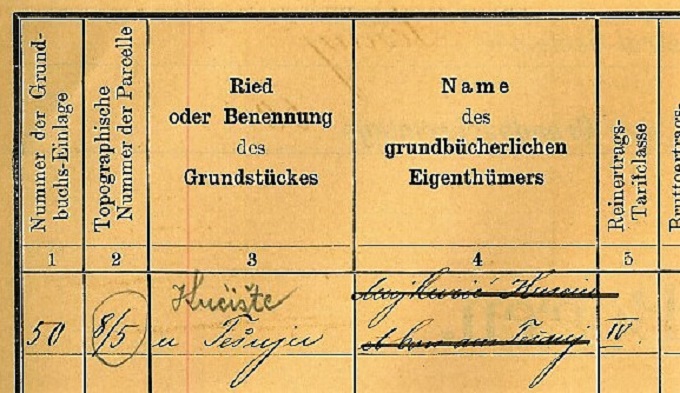 Nummer der Grund-
buchs-Einlage
Topographische
Nummer der Parcelle
Ried
oder Benennung
des
Grundstückes
Name
des
grundbücherlichen
Eigenthümers
Reinertrags-
Tarifclasse
Bruttoertrags-
1 2 3 4 5
Kućište
50 8/5 u Tešnju IV.
aus Tešanj